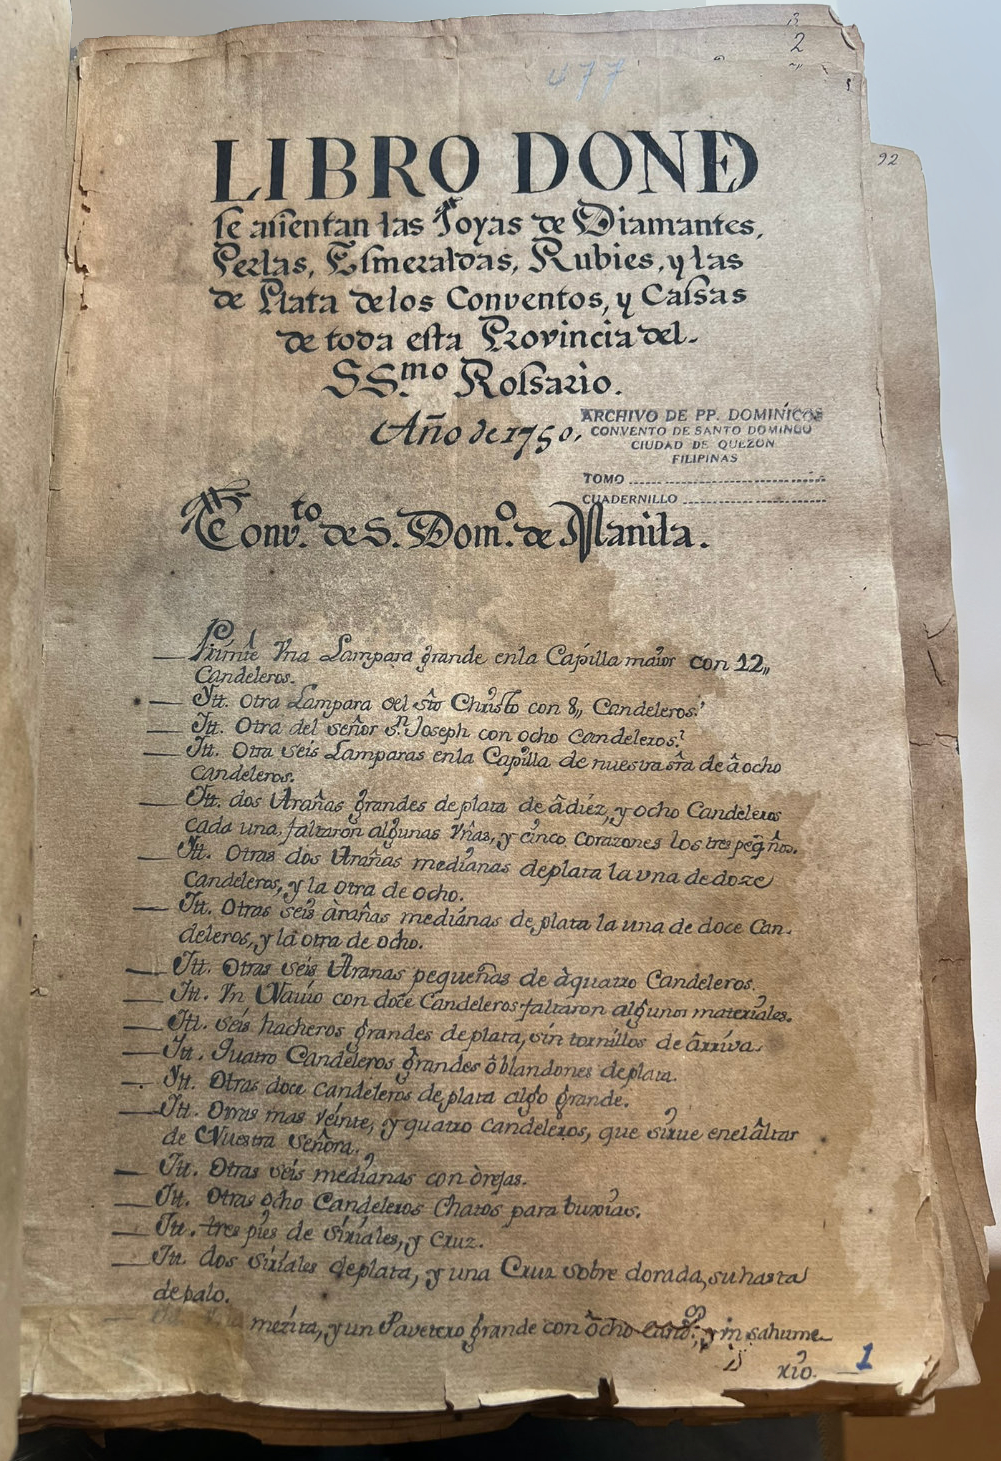 3
2
477
92
LIBRO DONDE
se assientan las Joyas de Diamantes,
Perlas, Esmeraldas, Rubies, y las
de Plata de los Conventos, y Cassas
de toda esta Provincia del
SS.mo Rossario.
Año de 1750.
ARCHIVO DE PP. DOMINICOS
CONVENTO DE SANTO DOMINGO
CIUDAD DE QUEZON
FILIPINAS
TOMO
CUADERNILLO
Conv.to de S. Dom.o de Manila.
Primte Vna Lampara grande enla Capilla maior con 12,,
Candeleros.
Ytt. Otra Lampara del sto Christo con 8,, Candeleros.
Itt. Otra del señor sn Joseph con ocho Candeleros.
Itt. Otra seis Lamparas enla Capilla de nuestra sra de â ocho
candeleros.
Itt. dos Arañas grandes de plata de â diez, y ocho Candeleros
cada una, faltaron algunas Vñas, y cinco corazones los tres peqños.
Itt. Otras dos Arañas medianas deplata la vna de doze
Candeleros, y la otra de ocho.
Itt. Otras seis arañas medianas de plata la una de doce Can-
deleros, y la otra de ocho.
Itt. Otras seis Aranas pequeñas de àquatro Candeleros.
Itt. Vn Navio con doce Candeleros faltaron algunos materiales.
Itt. seis hacheros grandes de plata, sin tornillos de ârriva.
Itt. Quatro Candeleros grandes ô blandones de plata.
Ytt. Otras doce candeleros de plata algo grande.
Itt. Otras mas veinte, y quatro candeleros, que sirue enel âltar
de Nuestra Señora.
Itt. Otras seis medianas con òrejas.
Itt. Otras ocho Candeleros Chatos para buxias.
Itt. tres pies de siriales, y Cruz.
Itt. dos siriales deplata, y una Cruz sobre dorada, su hasta
de palo.
mezita, y un Pavetero grande con ôcho cand.o, y in sahume
rio.
1